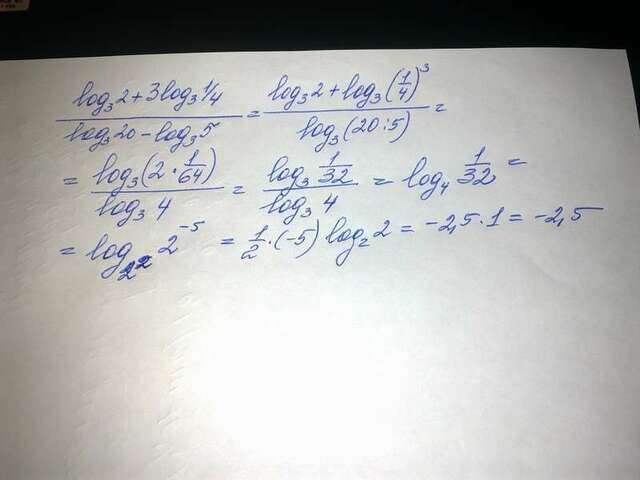 (log₃2+3log₃1/4)/(log₃20-log₃5) = (log₃2+log₃(1/4)³)/(log₃(20:5)) =
= (log₃(2·1/64))/(log₃4) = (log₃ 1/32)/(log₃4) = log₄ 1/32 =
= log_{2²} 2⁻⁵ = 1/2·(-5) log₂2 = -2,5·1 = -2,5